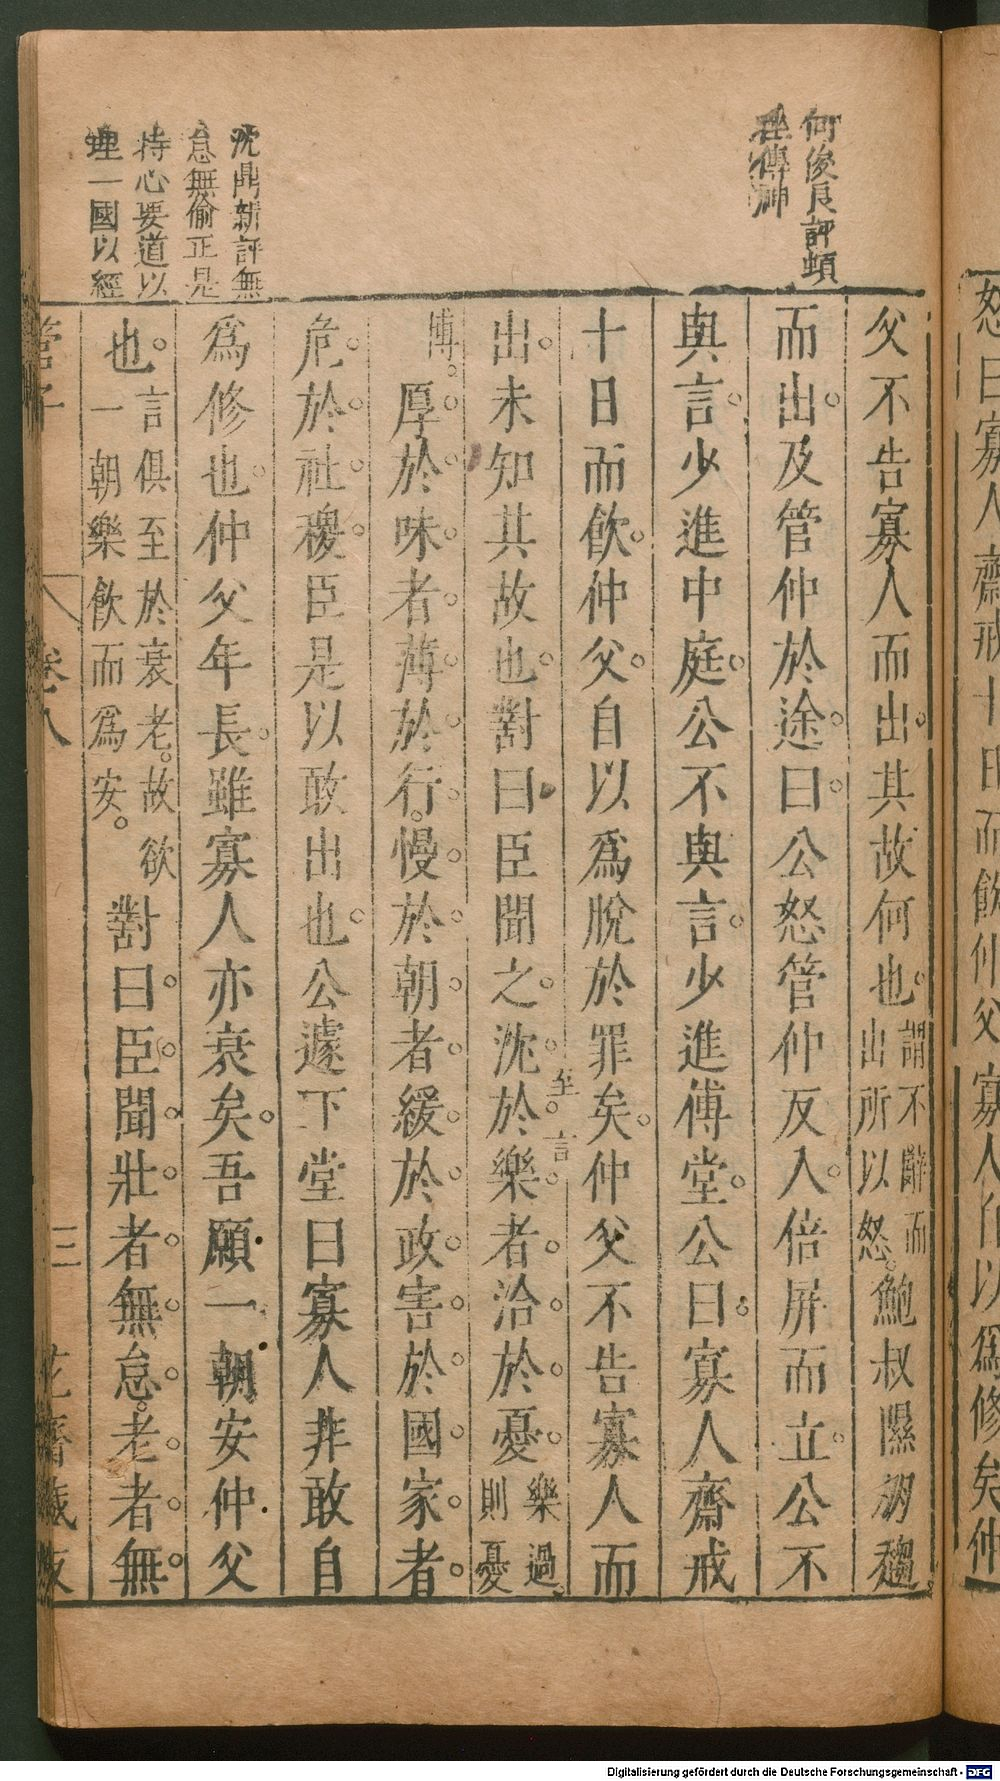 何俊良評頓
挫傳神
父不告寡人而出其故何也謂不辭而出所以怒鮑叔隰朋趨
而出及管仲於途曰公怒管仲反入倍屏而立公不
與言少進中庭公不與言少進傅堂公曰寡人齋戒
十日而飲仲父自以爲脫於罪矣仲父不告寡人而
出未知其故也對曰臣聞之沈於樂者洽於憂樂過則憂
至言
博厚於味者薄於行慢於朝者緩於政害於國家者
危於社稷臣是以敢出也公遽下堂曰寡人非敢自
爲修也仲父年長雖寡人亦衰矣吾願一朝安仲父
也言俱至於衰老故欲一朝樂飲而爲安對曰臣聞壯者無怠老者無
沈鼎新評無
怠無偷正是
持心要道以
理一國以經
管子 卷八 三 花齋藏板
怒曰寡人齋戒十日而飲仲父寡人自以爲修矣仲
Digitalisierung gefördert durch die Deutsche Forschungsgemeinschaft - DFG